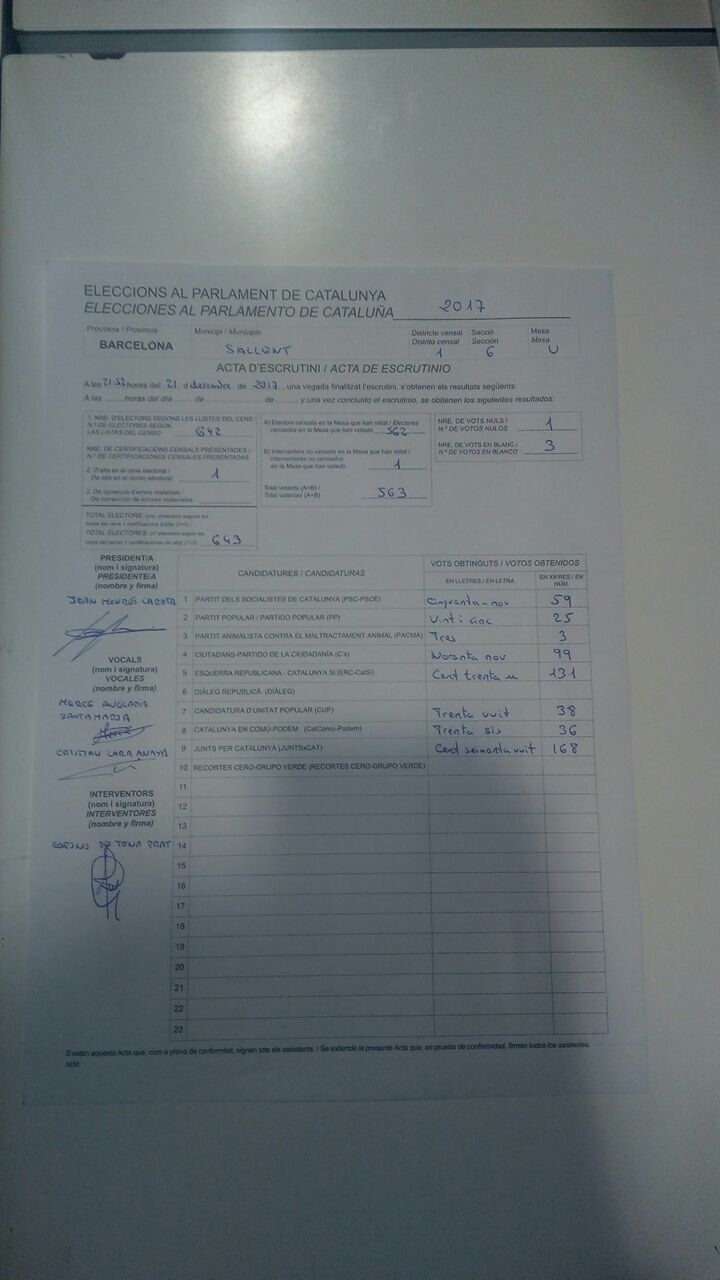 ELECCIONS AL PARLAMENT DE CATALUNYA
ELECCIONES AL PARLAMENTO DE CATALUÑA 2017
Província / Provincia Municipi / Municipio Districte censal Secció Mesa
Distrito censal Sección Mesa
BARCELONA SALLENT 1 6 U
ACTA D'ESCRUTINI / ACTA DE ESCRUTINIO
A les 21:52 hores del 21 d desembre de 2017, una vegada finalitzat l'escrutini, s'obtenen els resultats següents:
A las ........ horas del día ........ de ........ de ........ y una vez concluido el escrutinio, se obtienen los siguientes resultados:
1. NRE. D'ELECTORS SEGONS LES LLISTES DEL CENS /
N.º DE ELECTORES SEGÚN
LAS LISTAS DEL CENSO 642
NRE. DE CERTIFICACIONS CENSALS PRESENTADES /
N.º DE CERTIFICACIONES CENSALES PRESENTADAS
2. D'alta en el cens electoral /
De alta en el censo electoral 1
3. De correcció d'errors materials /
De corrección de errores materiales
TOTAL ELECTORS:
TOTAL ELECTORES: 643
A) Electors censats en la Mesa que han votat / Electores
censados en la Mesa que han votado 562
B) Interventors no censats en la Mesa que han votat /
Interventores no censados
en la Mesa que han votado 1
Total votants (A+B) /
Total votantes (A+B) 563
NRE. DE VOTS NULS /
N.º DE VOTOS NULOS 1
NRE. DE VOTS EN BLANC /
N.º DE VOTOS EN BLANCO 3
PRESIDENT/A
(nom i signatura)
PRESIDENTE/A
(nombre y firma)
JOAN
VOCALS
(nom i signatura)
VOCALES
(nombre y firma)
MERCE ANGLADA
SANTAMARIA
CRISTIAN LARA ANAYA
INTERVENTORS
(nom i signatura)
INTERVENTORES
(nombre y firma)
PRAT
CANDIDATURES / CANDIDATURAS VOTS OBTINGUTS / VOTOS OBTENIDOS
EN LLETRES / EN LETRA EN XIFRES / EN NÚM.
1 PARTIT DELS SOCIALISTES DE CATALUNYA (PSC-PSOE) Cinquanta-nou 59
2 PARTIT POPULAR / PARTIDO POPULAR (PP) Vint i cinc 25
3 PARTIT ANIMALISTA CONTRA EL MALTRACTAMENT ANIMAL (PACMA) Tres 3
4 CIUTADANS-PARTIDO DE LA CIUDADANÍA (C's) Noranta nou 99
5 ESQUERRA REPUBLICANA - CATALUNYA SÍ (ERC-CatSí) Cent trenta u 131
6 DIÀLEG REPUBLICÀ (DIÀLEG)
7 CANDIDATURA D'UNITAT POPULAR (CUP) Trenta vuit 38
8 CATALUNYA EN COMÚ-PODEM (CatComú-Podem) Trenta sis 36
9 JUNTS PER CATALUNYA (JUNTSxCAT) Cent seixanta vuit 168
10 RECORTES CERO-GRUPO VERDE (RECORTES CERO-GRUPO VERDE)
11
12
13
14
15
16
17
18
19
20
21
22
23
S'estén aquesta Acta que, com a prova de conformitat, signen tots els assistents. / Se extiende la presente Acta que, en prueba de conformidad, firman todos los asistentes.
AEM